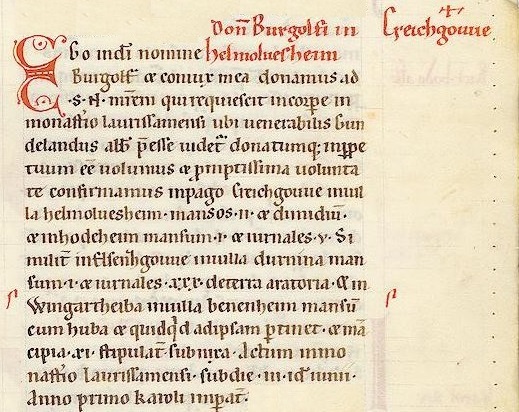 Don̄ Burgolfi in Creichgouue
Ego in dī nomine helmoluesheim
Burgolf & coniux mea donamus ad
·s·N· mr̄em qui requiescit in corpe in
monastio laurissamensi ubi uenerabilis Gun
delandus abb̄ p̄esse uidet̄ donatumq; inppe
tuum eē uolumus & pmptissima uolunta
te confirmamus inpago Creichgouue inuil
la helmoluesheim· mansos·ii· & dimidiū·
& inhodeheim mansum·i· & iurnales·v· Si
milit̄ inElsenhgouue inuilla durnina man
sum·i· & iurnales·xxx· deterra aratoria· & in
Wingartheiba inuilla benenheim mansū
cum huba & quidqd adipsam ptinet· & mā
cipia·xi· stipulat̄ subnixa· Actum inmo
nastio laurissamensi· subdie·iii·id' iunii·
anno primo karoli impat̄·